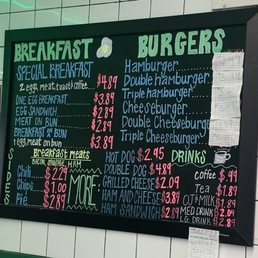 BREAKFAST
SPECIAL BREAKFAST $4.89
2 eggs, meat, toast & coffee
ONE EGG BREAKFAST $3.89
EGG SANDWICH $2.89
MEAT ON BUN $2.89
BREAKFAST BUN
1 egg, meat on bun $3.89
Breakfast meats:
BACON, SAUSAGE, HAM
SIDES
Chili $2.29
Chips $1.00
Pie $2.89
BURGERS
Hamburger
Double hamburger
Triple hamburger
Cheeseburger
Double Cheeseburger
Triple Cheeseburger
MORE:
HOT DOG $2.95
DOUBLE DOG $4.89
GRILLED CHEESE $2.09
HAM AND CHEESE $3.89
HAM SANDWICH $2.89
DRINKS
coffee $.99
Tea $1.89
OJ & MILK $1.89
MED. DRINK
LG. DRINK $2.89